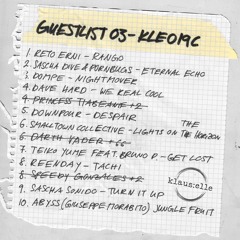 GUESTLIST 03 - KLE019C
1. RETO ERNI - RANGO
2. SASCHA DIVE & PORNBUGS - ETERNAL ECHO
3. DOMPE - NIGHTMOVER
4. DAVE HARD - WE REAL COOL
4. PRINCESS TIABEANIE +2
5. DOWNPOUR - DESPAIR
6. SMALLTOWN COLLECTIVE - LIGHTS ON THE HORIZON
6. DARTH VADER +66
7. TEIKO YUME FEAT. BRUNO P - GET LOST
8. REENDAY - TACHI
8. SPEEDY GONZALES +2
9. SASCHA SONIDO - TURN IT UP
10. ABYSS (GIUSEPPE MORABITO) JUNGLE FRUIT
klaus:elle